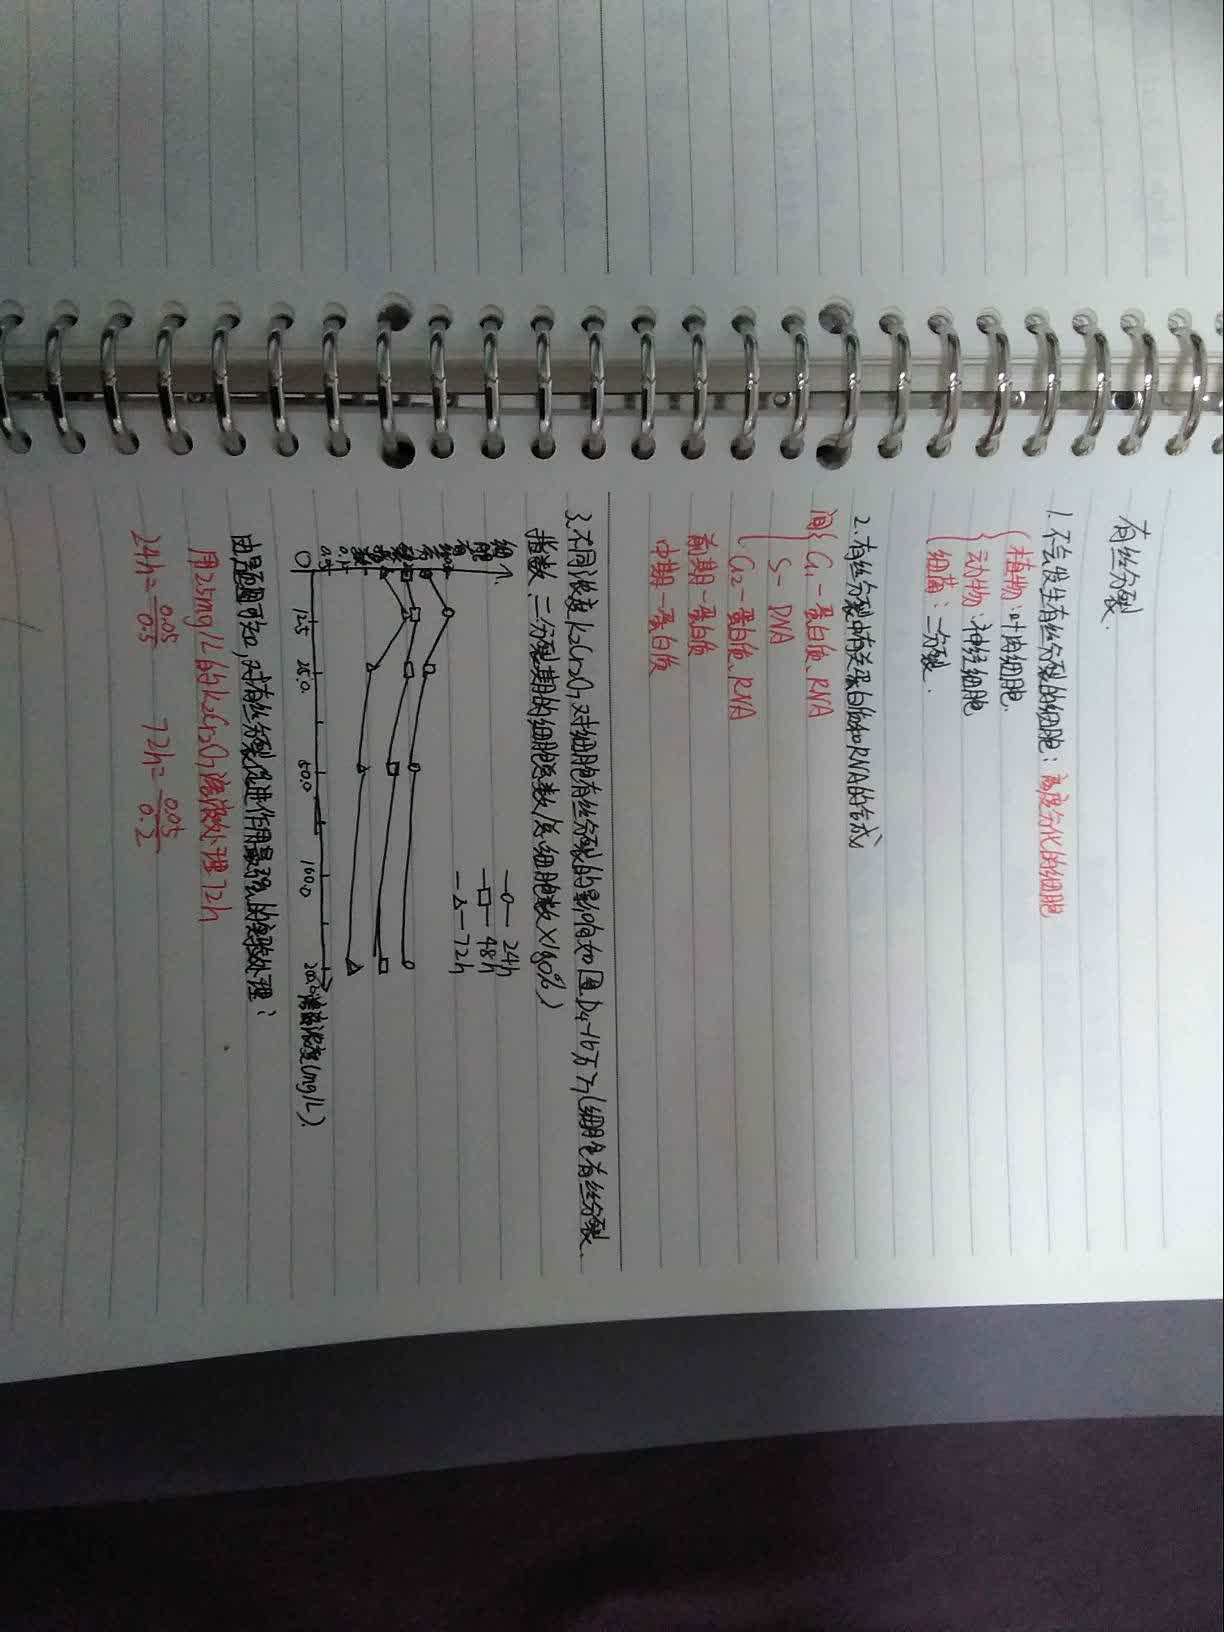 有丝分裂.
1. 不会发生有丝分裂的细胞: 高度分化的细胞
植物: 叶肉细胞.
动物: 神经细胞
细菌: 二分裂.
2. 有丝分裂中有关蛋白质和RNA的合成
间 G₁-蛋白质、RNA
S-DNA
G₂-蛋白质、RNA
前期-蛋白质
中期-蛋白质
3. 不同浓度K₂Cr₂O₇对细胞有丝分裂的影响如图D4-16所示(细胞有丝分裂
指数=分裂期的细胞总数/总细胞数×100%)
24h
48h
72h
细胞有丝分裂指数
0.1
0.05
0 12.5 25.0 50.0 100.0 200.0 溶液浓度(mg/L)
由题图可知,对有丝分裂促进作用最强的实验处理:
用25mg/L的K₂Cr₂O₇溶液处理72h
24h=0.05/0.5 72h=0.05/0.2